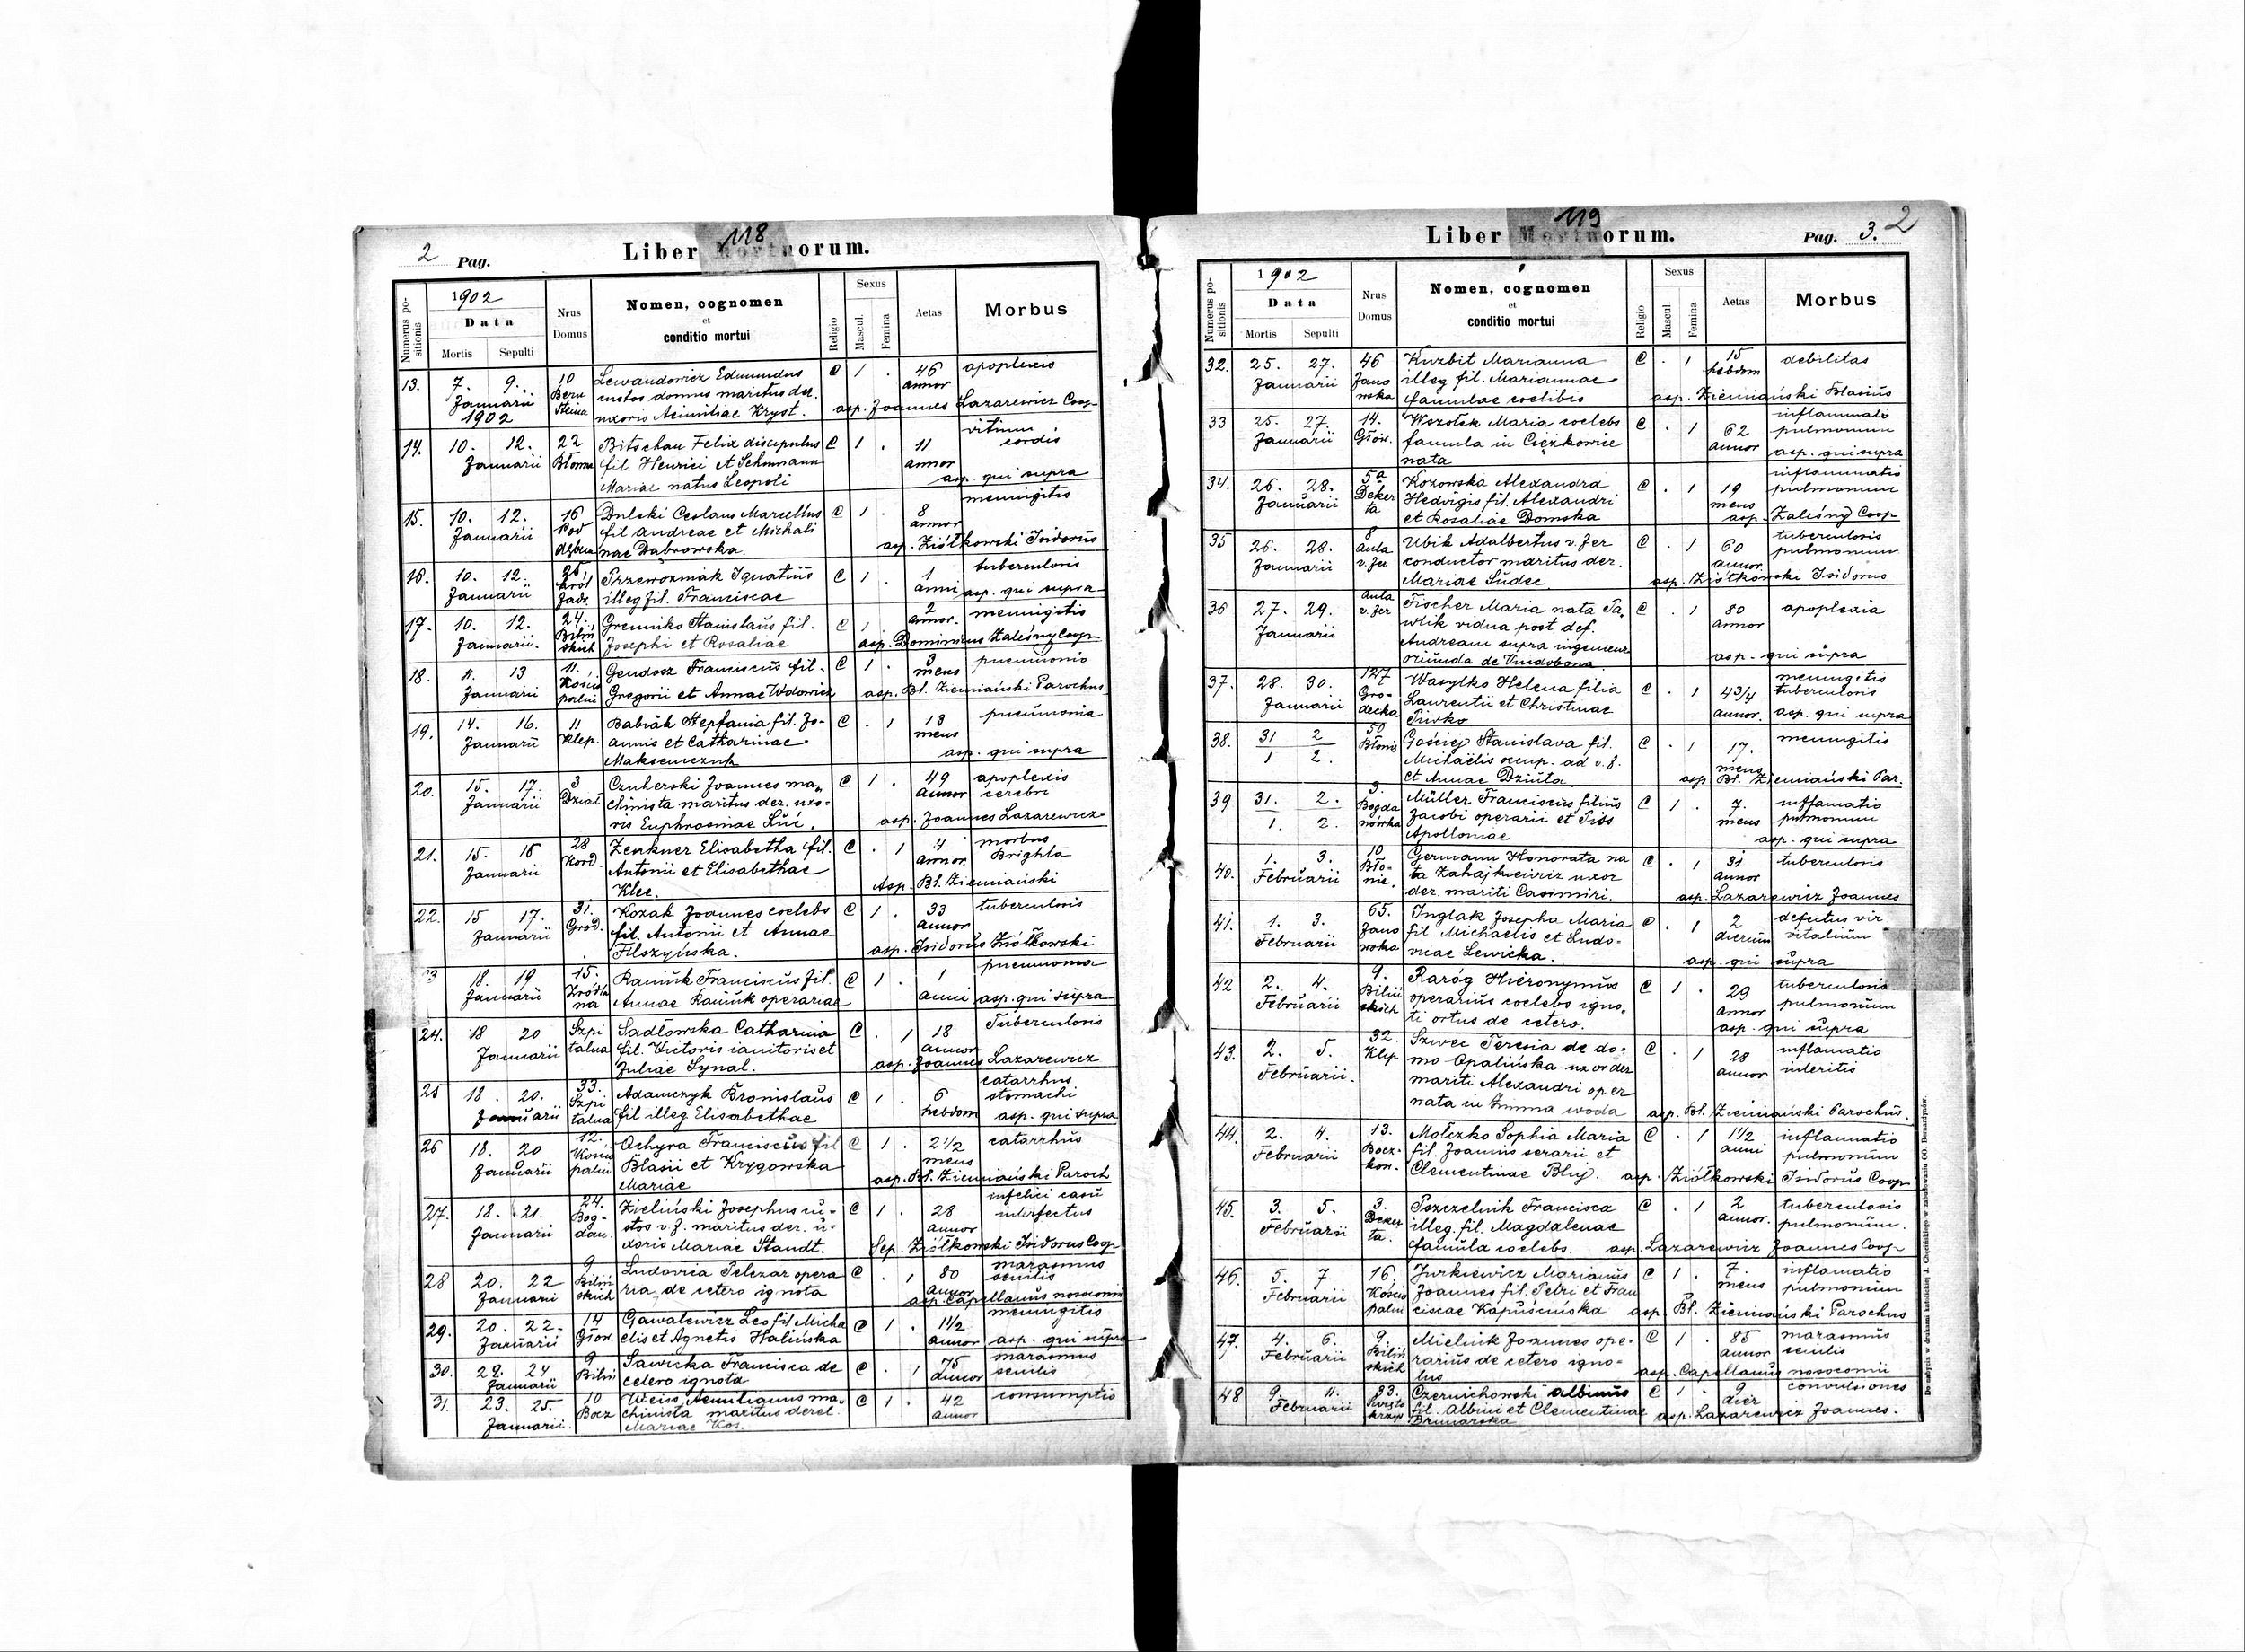 2 Pag.
118
Liber Mortuorum.
Numerus positionis
1902
Data
Mortis Sepulti
Nrus Domus
Nomen, cognomen
et
conditio mortui
Religio
Sexus
Mascul. Femina
Aetas
Morbus
13. 7. 9. 10 Lewandowicz Edmundus C 1 . 46 apoplexis
Januarii Bern custos domus maritus der. annor
1902 steina uxoris Aemiliae Kryst. asp. Joannes Lazarewicz Coop
14. 10. 12. 22 Bitschau Felix discipulus C 1 . 11 vitium cordis
Januarii Błonna fil. Henrici et Schmann annor
Mariae natus Leopoli asp. qui supra
15. 10. 12. 16 Dulski Ceslaus Marcellus C 1 . 8 meningitis
Januarii Pod fil Andreae et Michali annor
dębem nae Dąbrowska. asp. Ziółkowski Isidorus
16. 10. 12. Przewozniak Ignatius C 1 . 1 tuberculosis
Januarii illeg fil. Franciscae anni asp. qui supra
17. 10. 12. 24. Gremnko Stanislaus fil. C 1 . 2 meningitis
Januarii. Biliń annor.
skich Josephi et Rosaliae asp. Dominicus Zaleśny Coop
18. 11. 13 11. Gendosz Franciscus fil. C 1 . 3 pneumonia
Januarii Kościu mens
palni Gregorii et Annae Wdowicz asp. Bl. Ziemiański Parochus
19. 14. 16. 11 Babiak Stepfania fil. Jo- C . 1 13 pneumonia
Januarii Klep. annis et Catharinae mens
asp. qui supra
20. 15. 17. 3 Czuherski Joannes ma„ C 1 . 49 apoplexis
Januarii Dział chinista maritus der. uxo- annor cerebri
ris Euphrosinae Łuć. asp. Joannes Lazarewicz
21. 15. 18 28 Zenkner Elisabetha fil. C . 1 4 morbus
Januarii Kord. Antonii et Elisabethae annor. Brighta
Klee. Asp. Bl. Ziemiański
22. 15 17. 31. Kozak Joannes coelebs C 1 . 33 tuberculosis
Januarii Grod. fil. Antonii et Annae annor
Filszyńska. asp. Isidorus Ziółkowski
18. 19 15. Raniuk Franciscus fil. C 1 . 1 pneumonia
Januarii Źródla
na Annae Raniuk operariae anni asp. qui supra
24. 18 20 Szpi Sadłowska Catharina C . 1 18 Tuberculosis
Januarii talna fil. Victoris ianitoris et annor
Juliae Synal. asp. Joannes Lazarewicz
25 18. 20. 33. Adamczyk Bronislaus C 1 . 6 catarrhus
Januarii Szpi stomachi
talna fil illeg Elisabethae hebdom asp. qui supra
26 18. 20 12. Ochyra Franciscus fil C 1 . 2 1/2 catarrhus
Januarii Kościu Blasii et Krygowska mens
palni Mariae asp. Bl. Ziemiański Paroch
27. 18. 21. 24. Zieliński Josephus cu- C 1 . 28 infelici casu
Januarii Bog- stos v. f. maritus der. u- annor interfectus
dan. xoris Mariae Standt. Sep. Ziółkowski Isidorus Coop
28 20. 22 9 Ludovica Pelczar opera C . 1 80 marasmus
Januarii Biliń senilis
skich ria de cetero ignota annor asp. Capellanus nosocomii
29. 20. 22. 14 Gawalewicz Leo fil Micha C 1 . 1 1/2 meningitis
Januarii Głow. elis et Agnetis Halińska annor asp. qui supra
30. 22. 24 9 Sawicka Francisca de C . 1 75 marasmus
Januarii Biliń cetero ignota annor senilis
31. 23. 25. 10 Weiss ma„ C 1 . 42 consumptio
Januarii. Bocz chinista maritus derel. annor
Mariae Kos.
119
Liber Mortuorum.
Pag. 3. 2
Numerus positionis
1902
Data
Mortis Sepulti
Nrus Domus
Nomen, cognomen
et
conditio mortui
Religio
Sexus
Mascul. Femina
Aetas
Morbus
32. 25. 27. 46 Kuzbit Marianna C . 1 15 debilitas
Januarii Jano illeg fil. Mariannae hebdom
wska famulae coelibis asp. Ziemiański Blasius
33 25. 27. 14. Wszołek Maria coelebs C . 1 62 inflammatio
Januarii Głow. famula in Ciężkowice annor pulmonum
nata asp. qui supra
34. 26. 28. 5a Kozowska Alexandra C . 1 19 inflammatio
Januarii Deker Hedvigis fil. Alexandri mens pulmonum
ta et Rosaliae Domska asp. Zaleśny Coop
35 26. 28. 8 Ubik Adalbertus v. fer C . 1 60 tuberculosis
Januarii Aula conductor maritus der. annor. pulmonum
v. fer Mariae Sudec. asp. Ziółkowski Isidorus
36 27. 29. Aula Fischer Maria nata Pa„ C . 1 80 apoplexia
Januarii v. fer wlik vidua post def. annor
Andream supra ingenieur
oriunda de Vindobona asp. qui supra
37. 28. 30. 127 Wasylko Helena filia C . 1 4 3/4 meningitis
Januarii Gro- Laurentii et Christinae annor. tuberculosis
decka Piwko asp. qui supra
38. 31 2 50 Gościej Stanislava fil. C . 1 17. meningitis
1 2. Błonie Michaëlis occup. ad v. f. mens
et Annae Dziuta asp. Bl. Ziemiański Par.
39 31. 2. 3. Müller Franciscus filius C 1 . 7. inflamatio
1. 2. Bogda Jacobi operarii et Piss mens pulmonum
nówka Apolloniae asp. qui supra
40. 1. 3. 10 Germann Honorata na C . 1 31 tuberculosis
Februarii Bło- ta Zahajkiewicz uxor annor
nie. der. mariti Casimiri. asp. Lazarewicz Joannes
41. 1. 3. 65. Inglak Josepha Maria C . 1 2 defectus vir
Februarii Jano fil. Michaëlis et Ludo- dierum vitalium
wska vicae Lewicka. asp. qui supra
42 2. 4. 9. Raróg Hieronymus C 1 . 29 tuberculosis
Februarii Biliń operarius coelebs igno„ annor pulmonum
skich ti ortus de cetero. asp. qui supra
43. 2. 5. 32. Szwec Teresia de do- C . 1 28 inflamatio
Februarii. Klep mo Opalińska uxor der annor interitis
mariti Alexandri oper
nata in Zimna woda asp. Bl. Ziemiański Parochus.
44. 2. 4. 13. Mołczko Sophia Maria C . 1 1 1/2 inflammatio
Februarii Bocz- fil. Joannis serarii et anni pulmonum
kow. Clementinae Blij. asp. Ziółkowski Isidorus Coop
45. 3. 5. 3. Pszczelnik Francisca C . 1 2 tuberculosis
Februarii Deker illeg. fil. Magdalenae annor. pulmonum.
ta. famula coelebs. asp. Lazarewicz Joannes Coop
46. 5. 7 16, Jurkiewicz Marianus C 1 . 7. inflamatio
Februarii Kościu Joannes fil. Petri et Fran mens pulmonum
palni ciscae Kapuścińska asp. Bl. Ziemiański Parochus
47. 4. 6. 9. Mielnik Joannes ope- C 1 . 85 marasmus
Februarii Biliń rarius de cetero igno- annor senilis
skich tus asp. Capellanus nosocomii
48 9. 11. 33. Czernichowski albinus C 1 . 9 convulsiones
Februarii Święto fil. Albini et Clementinae dier
krzys Brunarska asp. Lazarewicz Joannes.
Do nabycia w drukarni katolickiej J. Chęcińskiego w zabudowaniu OO. Bernardynów.